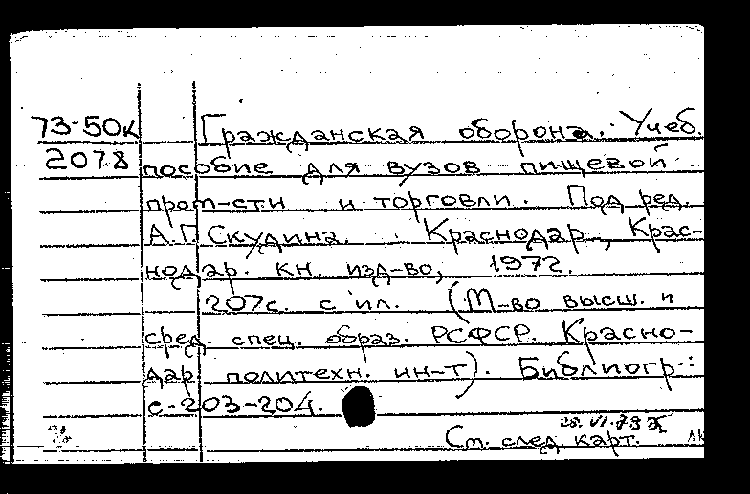 73-50к Гражданская оборона. Учеб.
2078 пособие для вузов пищевой
пром-сти и торговли. Под ред.
А.Г. Скудина. Краснодар, Крас-
нодар. кн. изд-во, 1972.
207с. с ил. (М-во высш. и
сред. спец. образ. РСФСР. Красно-
дар. политехн. ин-т). Библиогр.:
с. 203-204.
28.VI.73
См. след. карт.